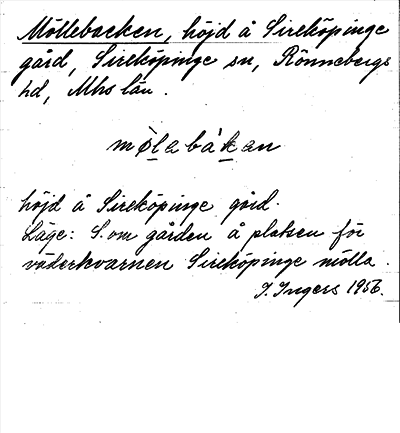 Möllebacken, höjd å Sireköpinge
gård, Sireköpinge sn, Rönnebergs
hd, Mhs län.
mø̀labákan
höjd å Sireköpinge gård.
Läge: S. om gården å platsen för
väderkvarnen Sireköpinge mölla.
I. Ingers 1956.